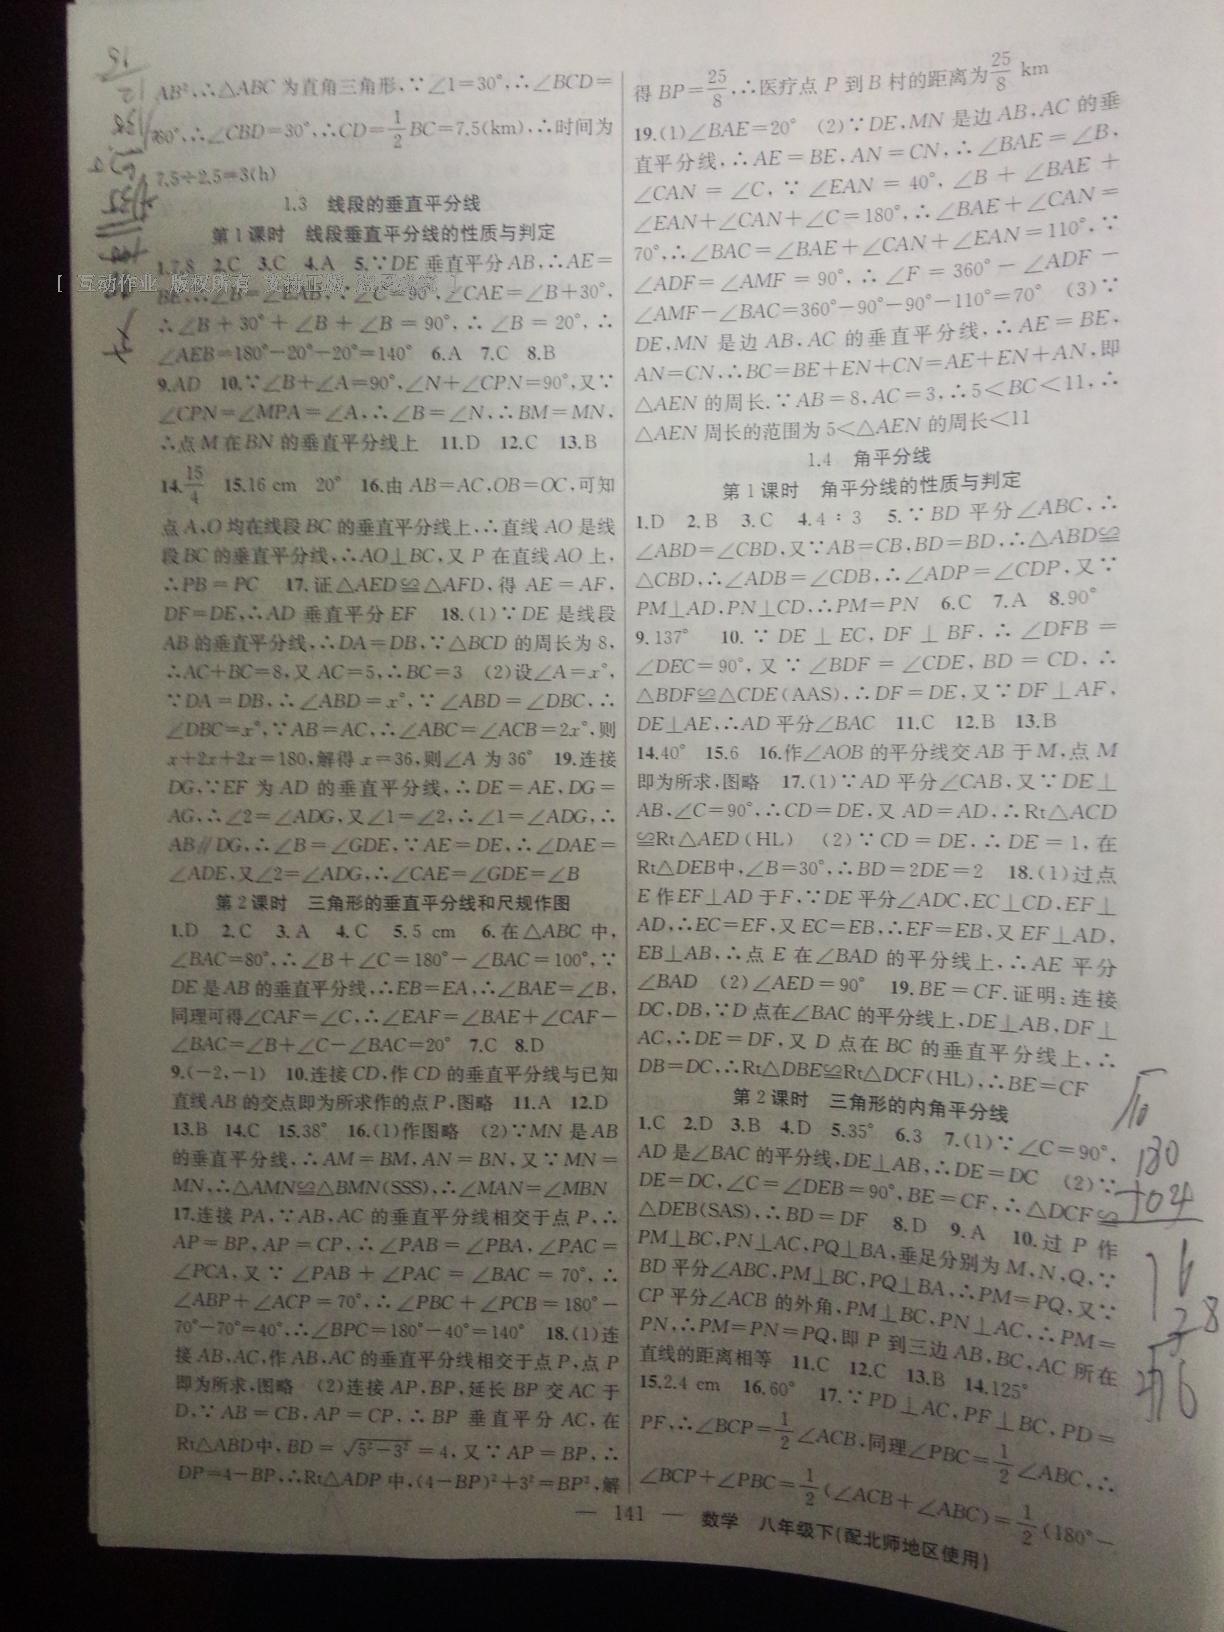 AB²,∴△ABC 为直角三角形,∵∠1=30°,∴∠BCD=
60°,∴∠CBD=30°,∴CD=1/2 BC=7.5(km),∴时间为
7.5÷2.5=3(h)
1.3 线段的垂直平分线
第1课时 线段垂直平分线的性质与判定
1.7.8 2.C 3.C 4.A 5.∵DE 垂直平分 AB,∴AE=
[ 互动作业 版权所有 支持正版 ]
BE,∴∠B=∠EAB,∵∠C=90°,∠CAE=∠B+30°,
∴∠B+30°+∠B+∠B=90°,∴∠B=20°,∴
∠AEB=180°-20°-20°=140° 6.A 7.C 8.B
9.AD 10.∵∠B+∠A=90°,∠N+∠CPN=90°,又∵
∠CPN=∠MPA=∠A,∴∠B=∠N,∴BM=MN,
∴点 M 在 BN 的垂直平分线上 11.D 12.C 13.B
14.15/4 15.16 cm 20° 16.由 AB=AC,OB=OC,可知
点 A,O 均在线段 BC 的垂直平分线上,∴直线 AO 是线
段 BC 的垂直平分线,∴AO⊥BC,又 P 在直线 AO 上,
∴PB=PC 17.证△AED≌△AFD,得 AE=AF,
DF=DE,∴AD 垂直平分 EF 18.(1)∵DE 是线段
AB 的垂直平分线,∴DA=DB,∵△BCD 的周长为 8,
∴AC+BC=8,又 AC=5,∴BC=3 (2)设∠A=x°,
∵DA=DB,∴∠ABD=x°,∵∠ABD=∠DBC,∴
∠DBC=x°,∵AB=AC,∴∠ABC=∠ACB=2x°,则
x+2x+2x=180,解得 x=36,则∠A 为 36° 19.连接
DG,∵EF 为 AD 的垂直平分线,∴DE=AE,DG=
AG,∴∠2=∠ADG,又∠1=∠2,∴∠1=∠ADG,∴
AB∥DG,∴∠B=∠GDE,∵AE=DE,∴∠DAE=
∠ADE,又∠2=∠ADG,∴∠CAE=∠GDE=∠B
第2课时 三角形的垂直平分线和尺规作图
1.D 2.C 3.A 4.C 5.5 cm 6.在△ABC 中,
∠BAC=80°,∴∠B+∠C=180°-∠BAC=100°,∵
DE 是 AB 的垂直平分线,∴EB=EA,∴∠BAE=∠B,
同理可得∠CAF=∠C,∴∠EAF=∠BAE+∠CAF-
∠BAC=∠B+∠C-∠BAC=20° 7.C 8.D
9.(-2,-1) 10.连接 CD,作 CD 的垂直平分线与已知
直线 AB 的交点即为所求作的点 P,图略 11.A 12.D
13.B 14.C 15.38° 16.(1)作图略 (2)∵MN 是 AB
的垂直平分线,∴AM=BM,AN=BN,又∵MN=
MN,∴△AMN≌△BMN(SSS),∴∠MAN=∠MBN
17.连接 PA,∵AB,AC 的垂直平分线相交于点 P,∴
AP=BP,AP=CP,∴∠PAB=∠PBA,∠PAC=
∠PCA,又∵∠PAB+∠PAC=∠BAC=70°,∴
∠ABP+∠ACP=70°,∴∠PBC+∠PCB=180°-
70°-70°=40°,∴∠BPC=180°-40°=140° 18.(1)连
接 AB,AC,作 AB,AC 的垂直平分线相交于点 P,点 P
即为所求,图略 (2)连接 AP,BP,延长 BP 交 AC 于
D,∵AB=CB,AP=CP,∴BP 垂直平分 AC,在
Rt△ABD 中,BD=√(5²-3²)=4,又∵AP=BP,∴
DP=4-BP,∴Rt△ADP 中,(4-BP)²+3²=BP²,解
得 BP=25/8,∴医疗点 P 到 B 村的距离为 25/8 km
19.(1)∠BAE=20° (2)∵DE,MN 是边 AB,AC 的垂
直平分线,∴AE=BE,AN=CN,∴∠BAE=∠B,
∠CAN=∠C,∵∠EAN=40°,∠B+∠BAE+
∠EAN+∠CAN+∠C=180°,∴∠BAE+∠CAN=
70°,∴∠BAC=∠BAE+∠CAN+∠EAN=110°,∵
∠ADF=∠AMF=90°,∴∠F=360°-∠ADF-
∠AMF-∠BAC=360°-90°-90°-110°=70° (3)∵
DE,MN 是边 AB,AC 的垂直平分线,∴AE=BE,
AN=CN,∴BC=BE+EN+CN=AE+EN+AN,即
△AEN 的周长.∵AB=8,AC=3,∴5<BC<11,∴
△AEN 周长的范围为 5<△AEN 的周长<11
1.4 角平分线
第1课时 角平分线的性质与判定
1.D 2.B 3.C 4.4∶3 5.∵BD 平分∠ABC,∴
∠ABD=∠CBD,又∵AB=CB,BD=BD,∴△ABD≌
△CBD,∴∠ADB=∠CDB,∴∠ADP=∠CDP,又∵
PM⊥AD,PN⊥CD,∴PM=PN 6.C 7.A 8.90°
9.137° 10.∵DE⊥EC,DF⊥BF,∴∠DFB=
∠DEC=90°,又∵∠BDF=∠CDE,BD=CD,∴
△BDF≌△CDE(AAS),∴DF=DE,又∵DF⊥AF,
DE⊥AE,∴AD 平分∠BAC 11.C 12.B 13.B
14.40° 15.6 16.作∠AOB 的平分线交 AB 于 M,点 M
即为所求,图略 17.(1)∵AD 平分∠CAB,又∵DE⊥
AB,∠C=90°,∴CD=DE,又 AD=AD,∴Rt△ACD
≌Rt△AED(HL) (2)∵CD=DE,∴DE=1,在
Rt△DEB 中,∠B=30°,∴BD=2DE=2 18.(1)过点
E 作 EF⊥AD 于 F,∵DE 平分∠ADC,EC⊥CD,EF⊥
AD,∴EC=EF,又 EC=EB,∴EF=EB,又 EF⊥AD,
EB⊥AB,∴点 E 在∠BAD 的平分线上,∴AE 平分
∠BAD (2)∠AED=90° 19.BE=CF.证明:连接
DC,DB,∵D 点在∠BAC 的平分线上,DE⊥AB,DF⊥
AC,∴DE=DF,又 D 点在 BC 的垂直平分线上,∴
DB=DC,∴Rt△DBE≌Rt△DCF(HL),∴BE=CF
第2课时 三角形的内角平分线
1.C 2.D 3.B 4.D 5.35° 6.3 7.(1)∵∠C=90°,
AD 是∠BAC 的平分线,DE⊥AB,∴DE=DC (2)∵
DE=DC,∠C=∠DEB=90°,BE=CF,∴△DCF≌
△DEB(SAS),∴BD=DF 8.D 9.A 10.过 P 作
PM⊥BC,PN⊥AC,PQ⊥BA,垂足分别为 M,N,Q,∵
BD 平分∠ABC,PM⊥BC,PQ⊥BA,∴PM=PQ,又∵
CP 平分∠ACB 的外角,PM⊥BC,PN⊥AC,∴PM=
PN,∴PM=PN=PQ,即 P 到三边 AB,BC,AC 所在
直线的距离相等 11.C 12.C 13.B 14.125°
15.2.4 cm 16.60° 17.∵PD⊥AC,PF⊥BC,PD=
PF,∴∠BCP=1/2∠ACB,同理∠PBC=1/2∠ABC,∴
∠BCP+∠PBC=1/2(∠ACB+∠ABC)=1/2(180°-
— 141 — 数学 八年级下(配北师地区使用)
180